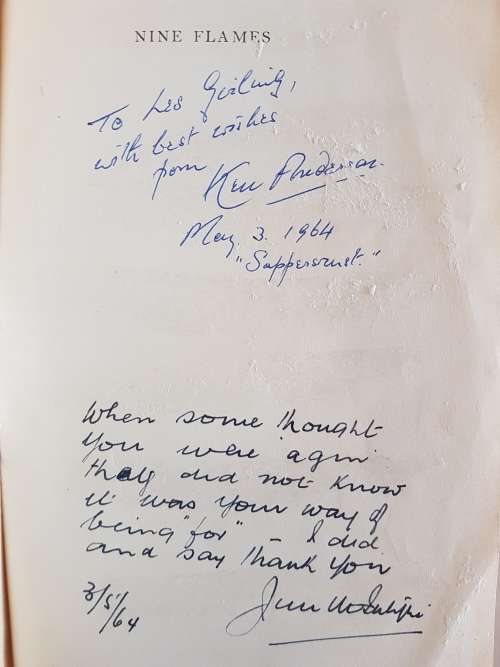 NINE FLAMES
To Les Girling,
with best wishes
from Ken Anderson.
May 3. 1964
"Sappersrust."
When some thought
you were 'agin'
they did not know
it was your way of
being "for" – I did
and say thank you
3/5/64